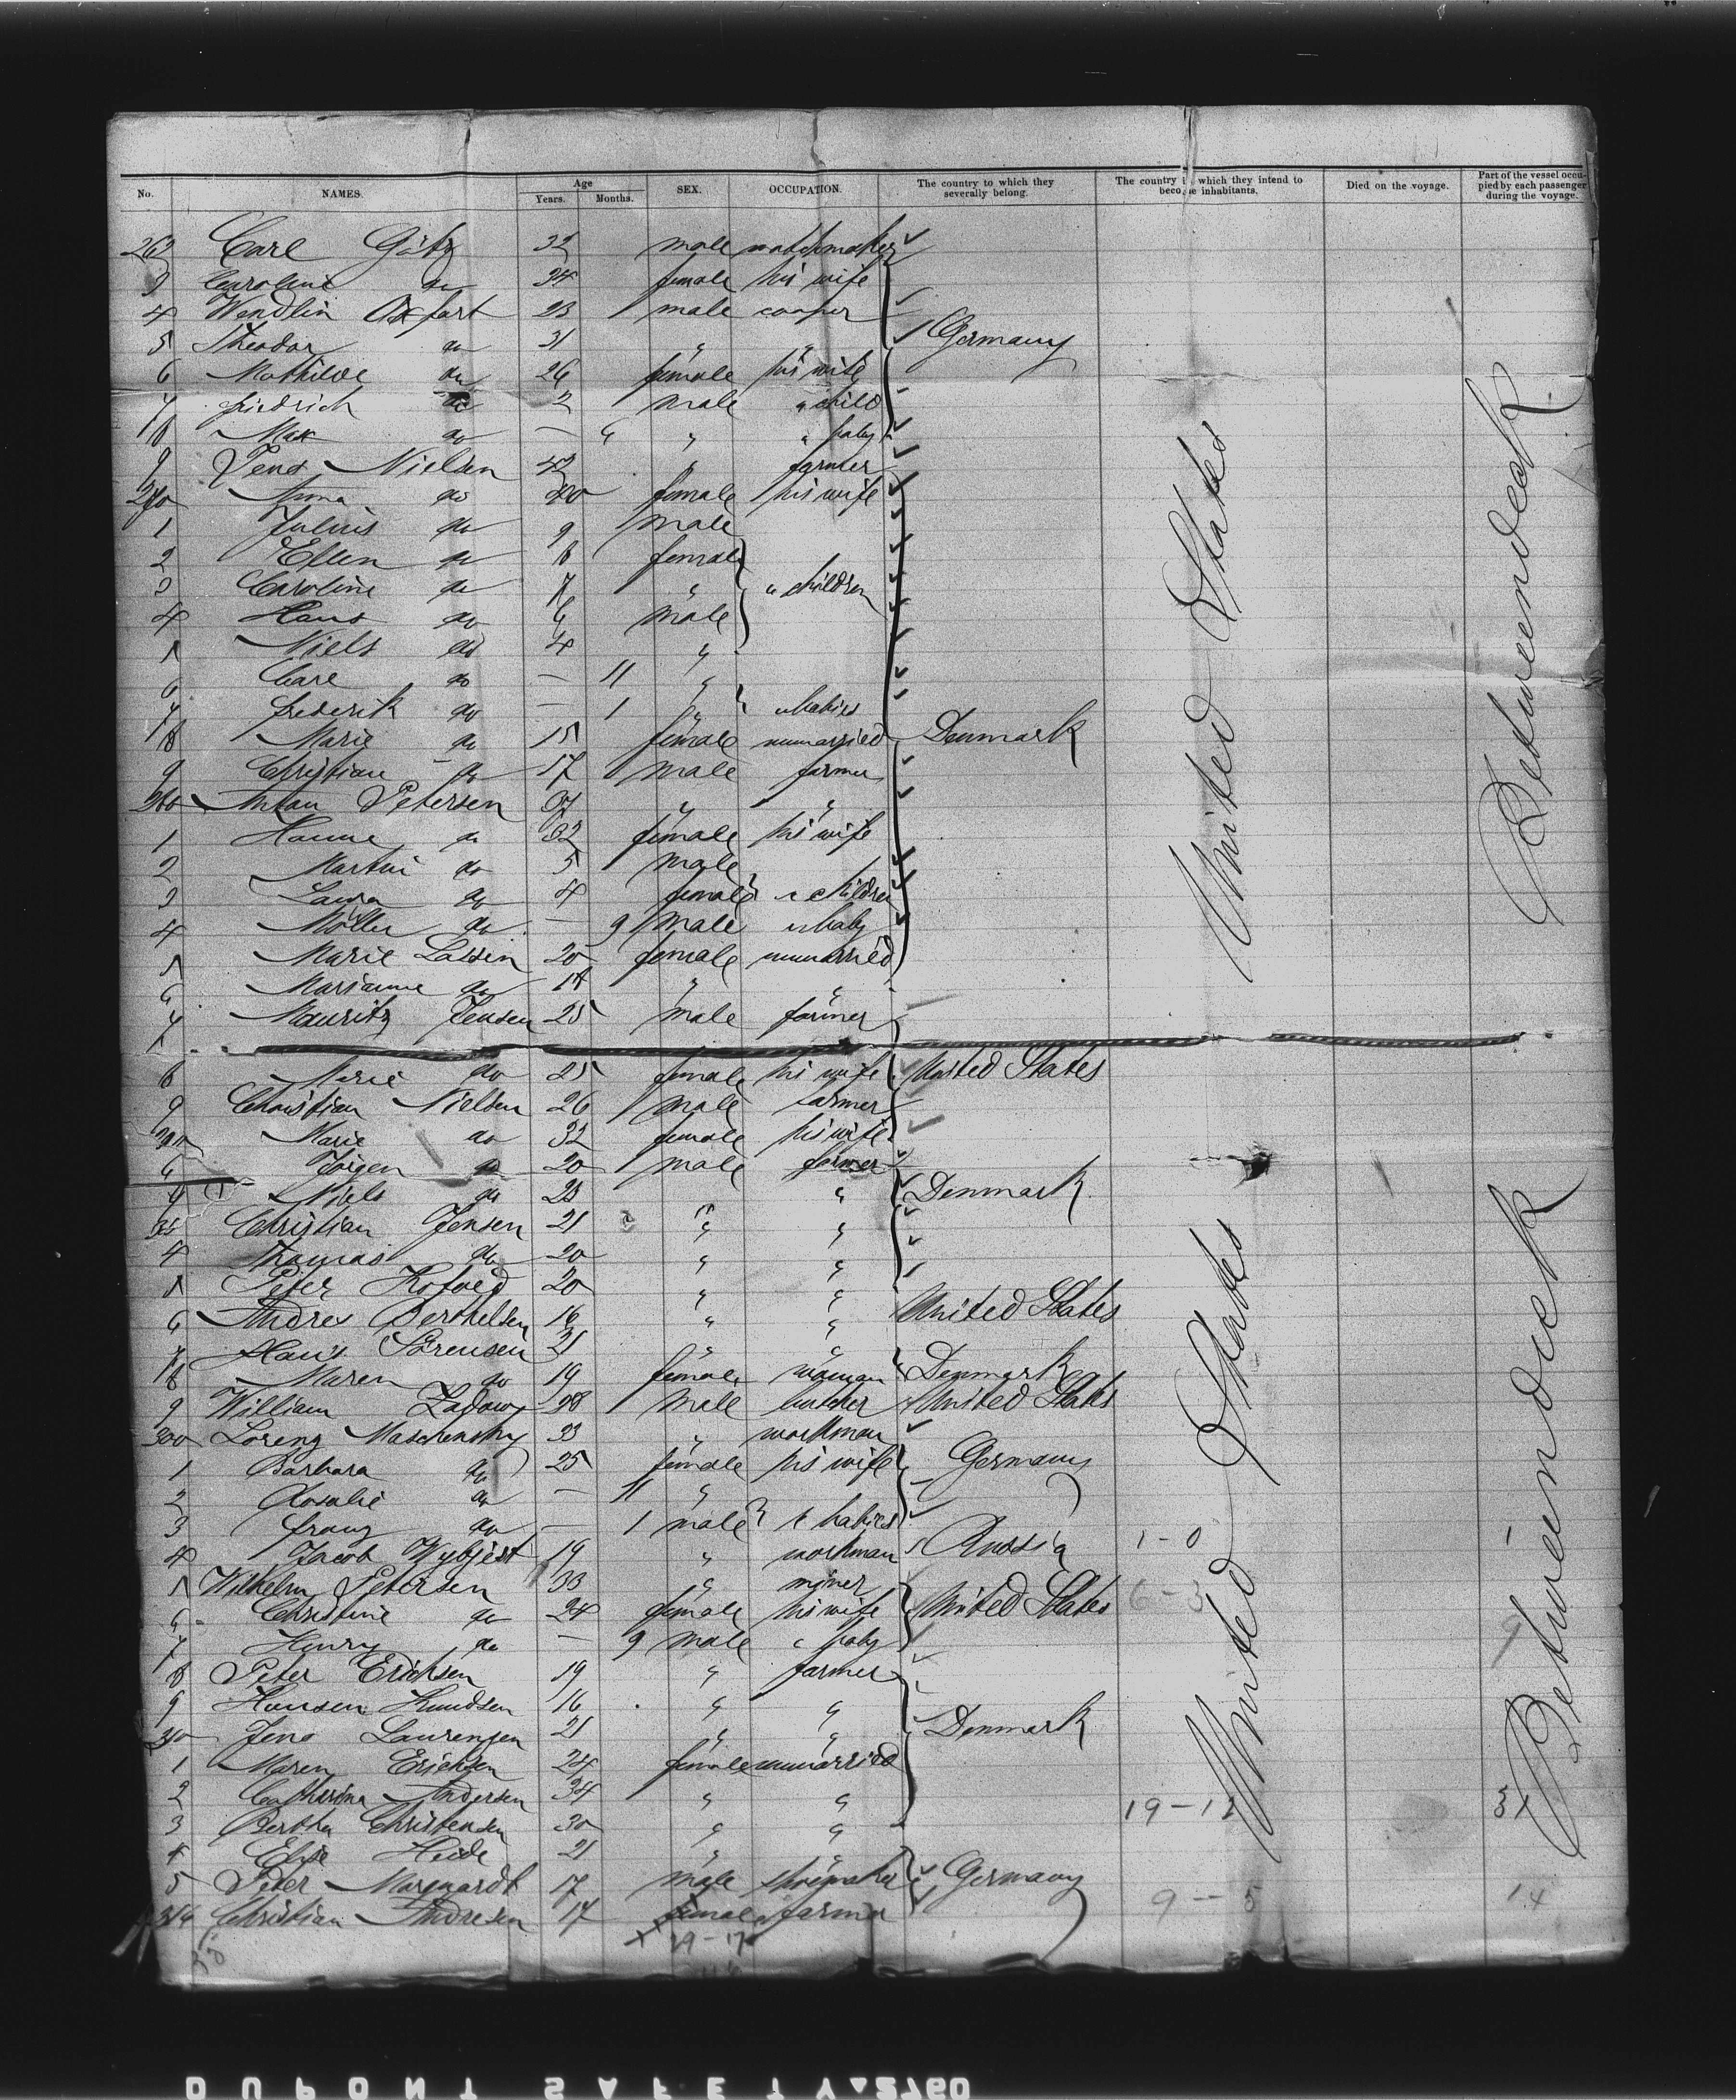 No. NAMES. Age Years. Months. SEX. OCCUPATION. The country to which they severally belong. The country in which they intend to become inhabitants. Died on the voyage. Part of the vessel occupied by each passenger during the voyage.
262 Carl Götz 32 male watchmaker
3 Caroline do 34 female his wife
4 Wendlin Oxfart 23 male cooper
5 Theodor do 31 " " Germany
6 Mathilde do 26 female his wife
7 friedrich do 2 male " child
8 Max do — 6 " " baby
9 Jens Nielsen 42 " farmer
270 Anna do 40 female his wife
1 Julius do 9 male
2 Ellen do 8 female
3 Caroline do 7 " " children
4 Hans do 6 male
5 Niels do 4 "
6 Carl do — 11 "
7 frederik do — 1 " " babies
8 Marie do 15 female unmarried Denmark
9 Christian do 17 male farmer
280 Anton Petersen 37 " "
1 Hanne do 32 female his wife
2 Martin do 5 male
3 Laura do 4 female " children
4 Möller do — 9 male " baby
5 Marie Lassen 20 female unmarried
6 Marianne do 18 " "
7 Mauritz Jensen 25 male farmer
8 Marie do 25 female his wife United States
9 Christian Nielsen 26 male farmer
290 Marie do 32 female his wife
Jörgen do 20 male farmer
Niels do 23 " Denmark
Christian Jensen 21 " "
4 Thomas do 20 " "
5 Peter Kofoed 20 " "
6 Andres Berthelsen 16 " " United States
7 Hans Sörensen 21 " "
8 Maren do 19 female woman Denmark
9 William Ladowy 38 male butcher United States
300 Lorenz Maschensky 33 " workman
1 Barbara do 25 female his wife Germany
2 Rosalie do — 11 "
3 franz do — 1 male " babies
4 Jacob Wybjest 19 " workman Russia 1-0 1
5 Wilhelm Petersen 33 " miner
6 Christine do 24 female his wife United States 6-3
7 Henry do — 9 male " baby 9
8 Peter Erichsen 19 " farmer
9 Hansen Knudsen 16 " "
310 Jens Laurensen 21 " " Denmark
1 Maren Erichsen 24 female unmarried
2 Catharina Andersen 34 " "
3 Bertha Christensen 30 " " 19-12 31
4 Elise Heide 21 "
5 Peter Marquardt 17 male shoemaker Germany
316 Christian Andresen 17 female farmer 9-5 14
29-17
United States
United States
United States
Betweendeck
Betweendeck
DUPONT SAFETY 2760